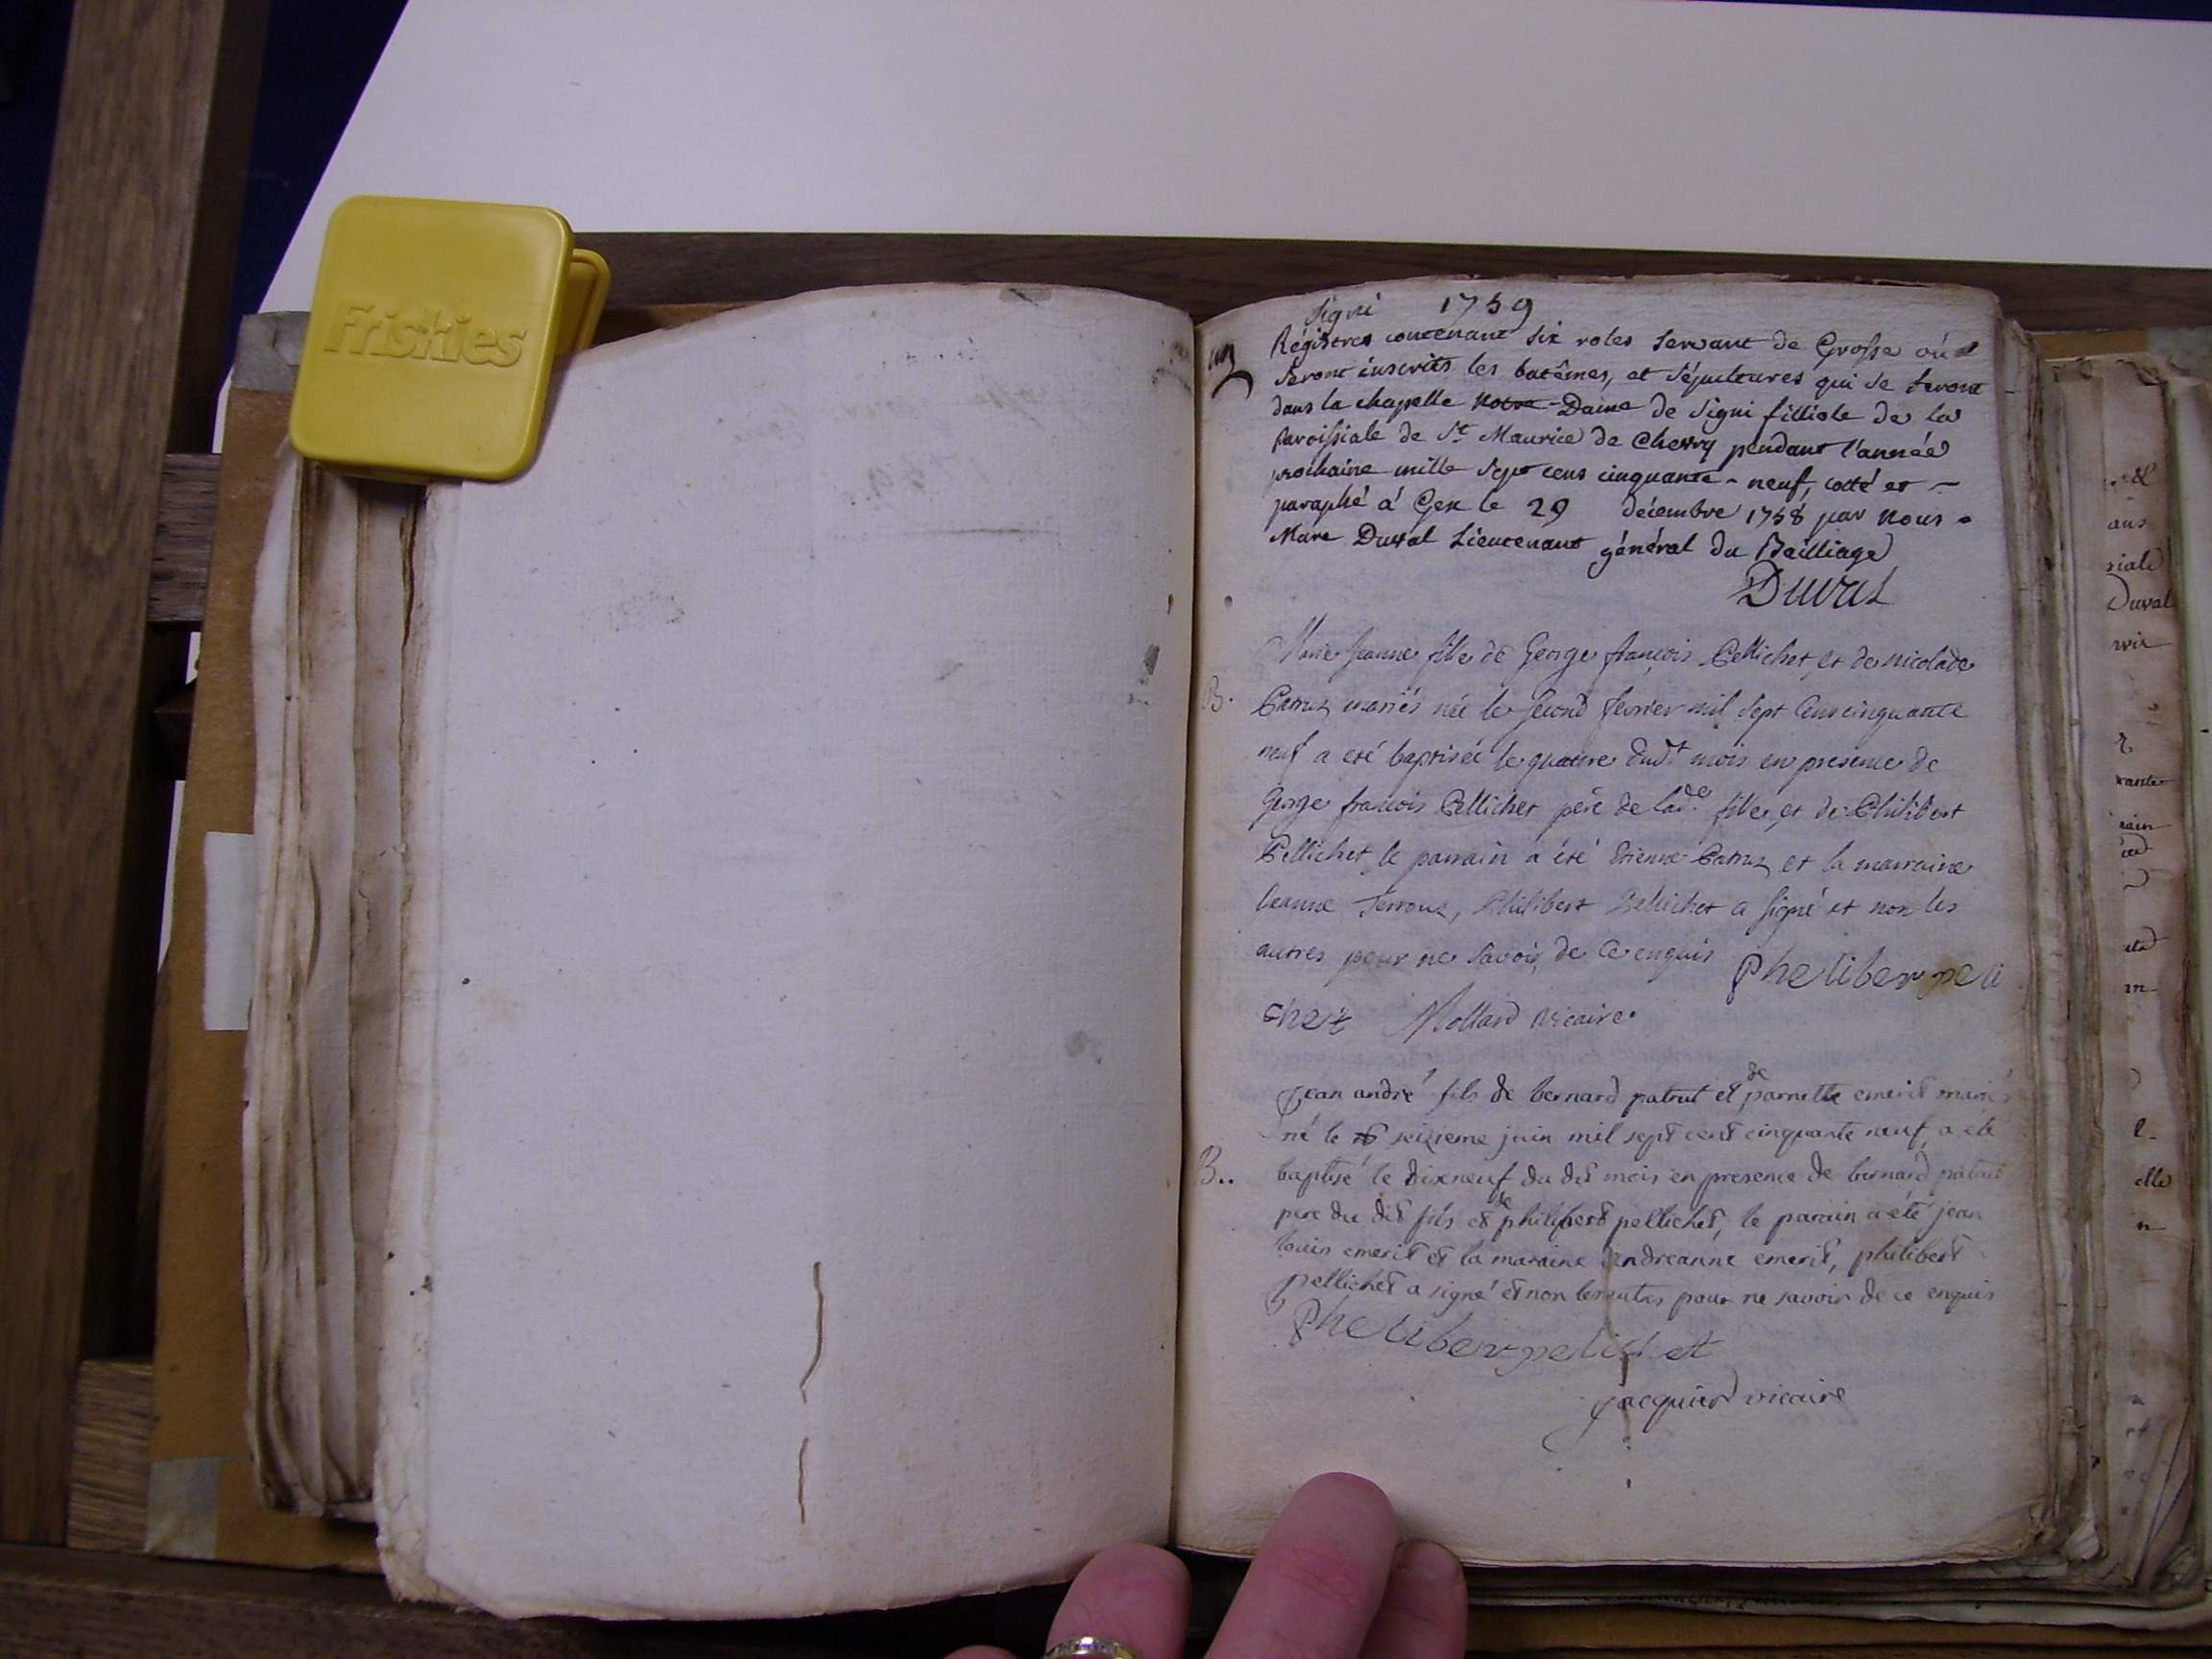 Friskies
Signi 1759
Régistres contenant six roles servant de Grosse où
seront inscrits les batêmes, et sépultures qui se feront
dans la chapelle Notre-Dame de Signi filliole de la
Paroissiale de St. Maurice de Chevry pendant l'année
prochaine mille sept cens cinquante-neuf, cotté et
paraphé à Gex le 29 décembre 1758 par Nous
Marc Duval Lieutenant général du Bailliage
Duval
Marie Jeanne fille de George françois Pellichet, et de nicolade
B. mariés née le second fevrier mil sept cens cinquante
neuf a eté baptisée le quattre dudt mois en presence de
George francois Pellichet pére de lade. fille, et de Philibert
Pellichet le parrain a été Etienne et la marraine
Jeanne Philibert Pellichet a signé et non les
autres pour ne savoir de ce enquis Pheliber peli
chet Mollard vicaire.
jean andré fils de bernard patrut et de parnette emerit mariés
né le seizieme juin mil sept cent cinquante neuf a été
B.. baptisé le dixneuf du dit mois en presence de bernard patrut
pere du dit fils et de philibert pellichet, le parain a été jean
louis emerit et la maraine andreanne emerit, philibert
pellichet a signé et non les autres pour ne savoir de ce enquis
Pheliber pelichet
jacquier vicaire
Duval